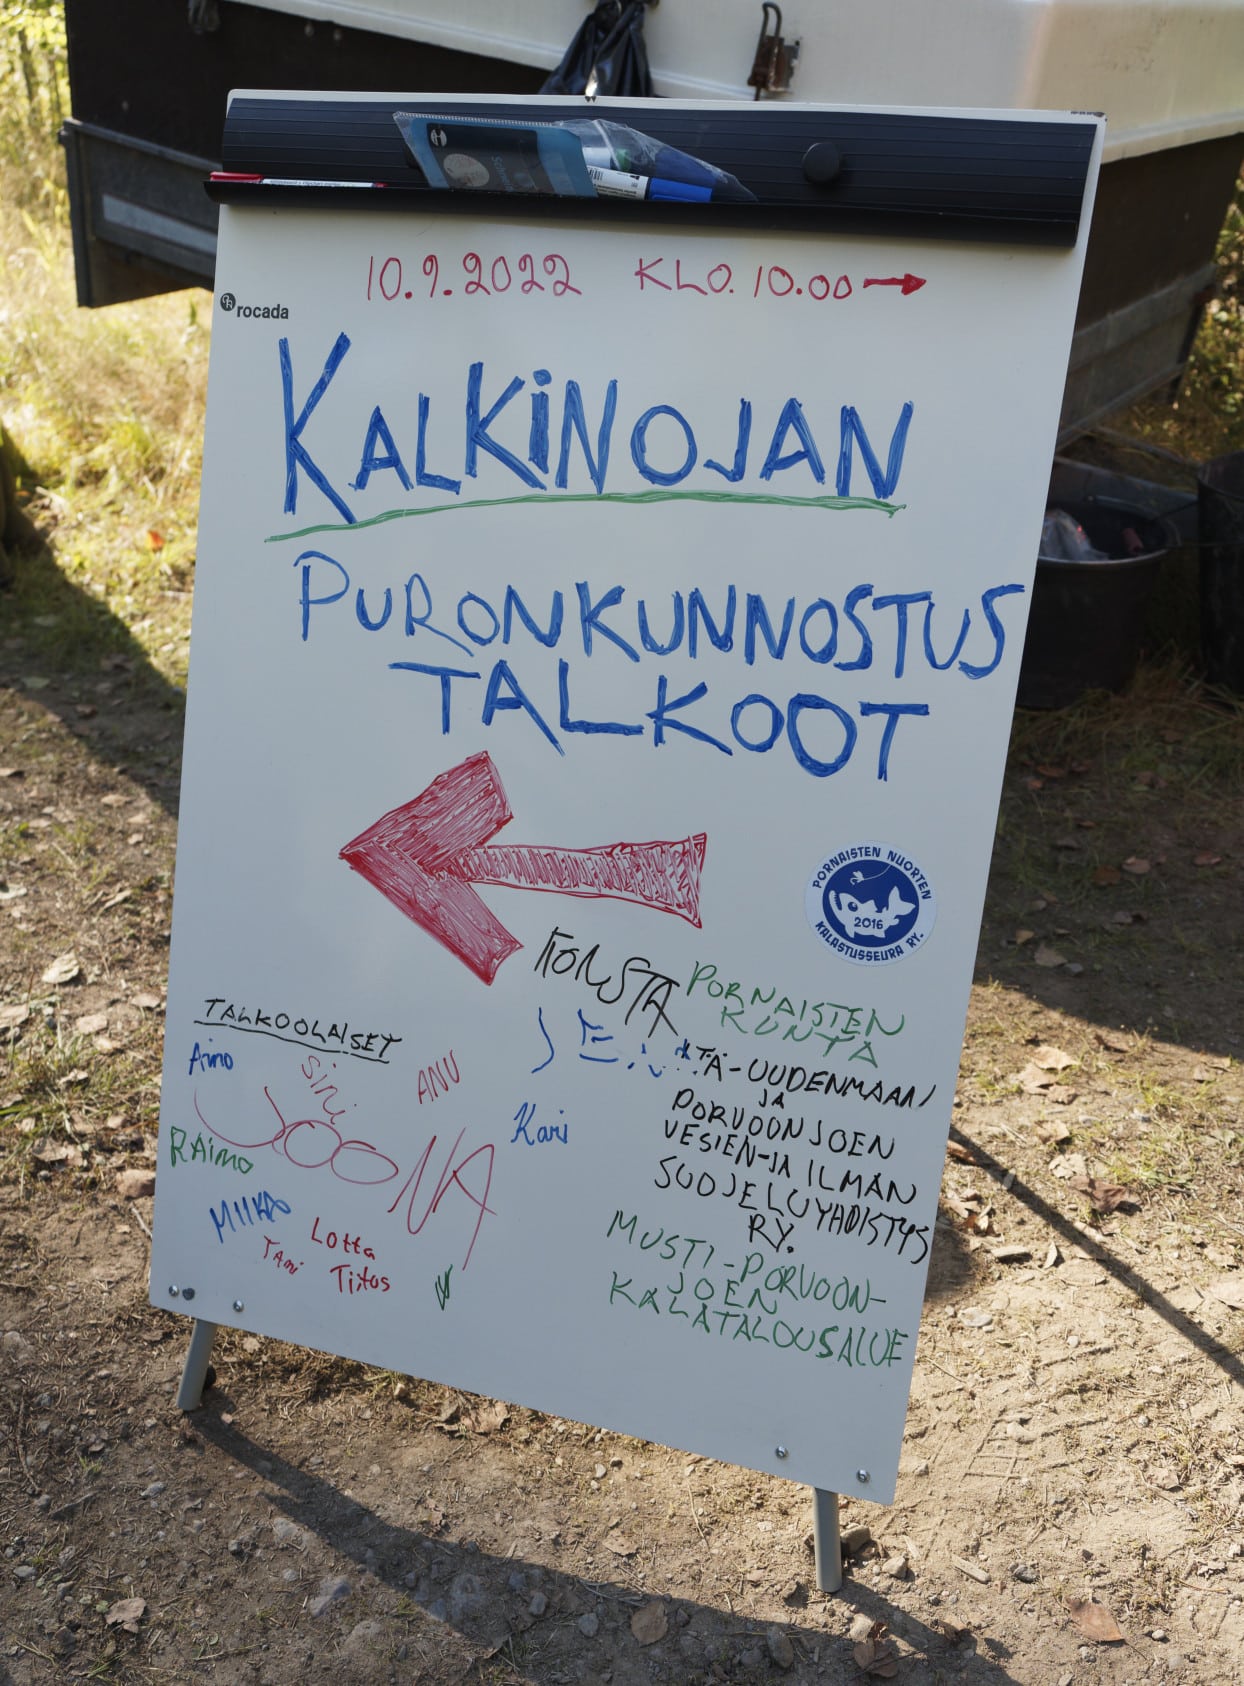 10.9.2022 KLO. 10.00
rocada
KALKINOJAN
PURONKUNNOSTUS
TALKOOT
PORNAISTEN NUORTEN
2016
KALASTUSSEURA RY.
TALKOOLAISET
Aimo
Sini
ANU
JOONA
RAimo
MIIKA
Lotta
TAMI
Titus
KONSTA
Kari
PORNAISTEN
KUNTA
TÄ-UUDENMAAN
JA
PORVOONJOEN
VESIEN-JA ILMAN
SUOJELUYHDISTYS
RY.
MUSTI-PORVOON-
JOEN
KALATALOUSALUE